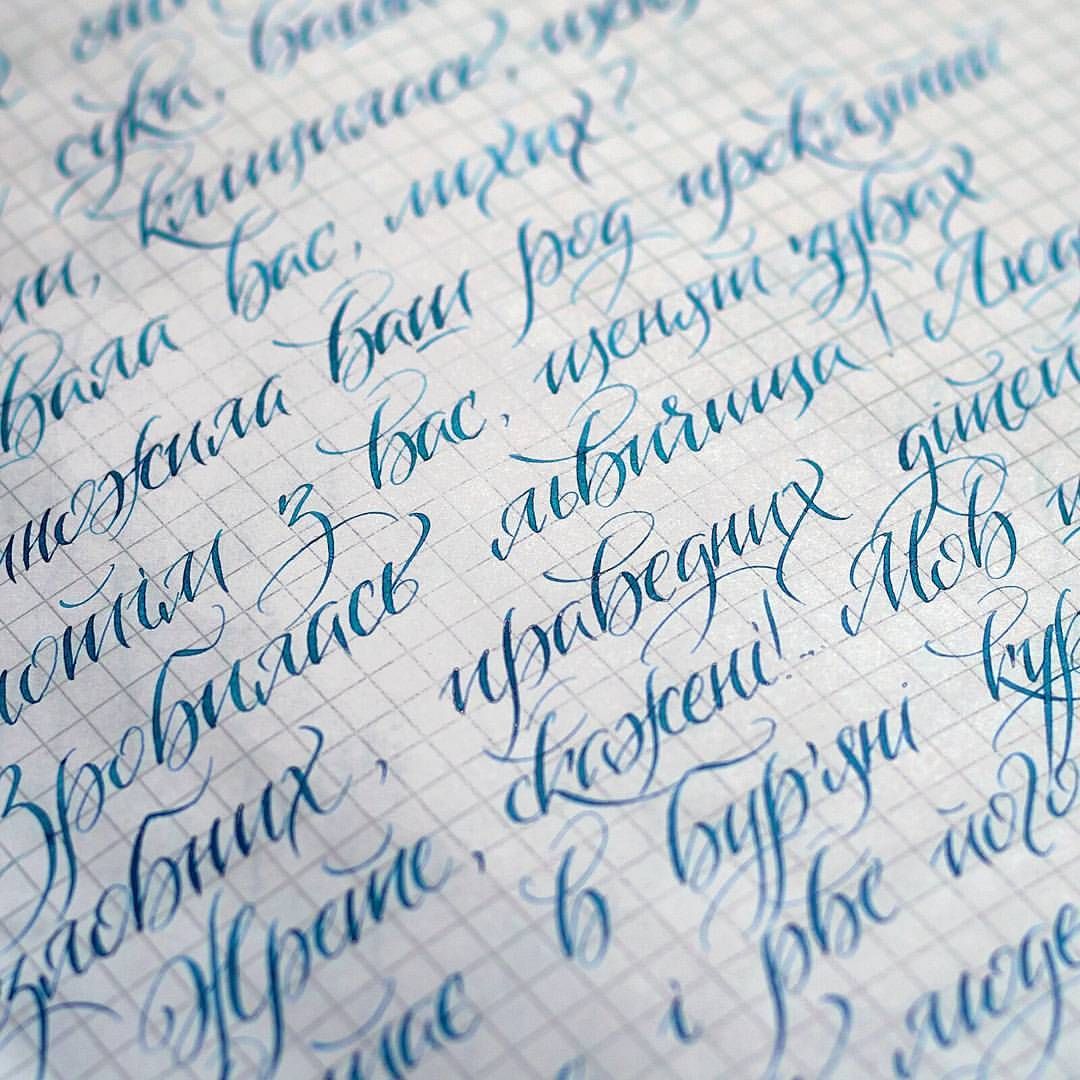 сука,
кліщилась,
вала вас, лихих?
множила ваш род проклятий
потім з вас, щенят зубах
Зробилась львичища! Люд
злобних, праведних дітей
Жрете, скажені!.. Мов
в бур'яні кур
і рве його
люде